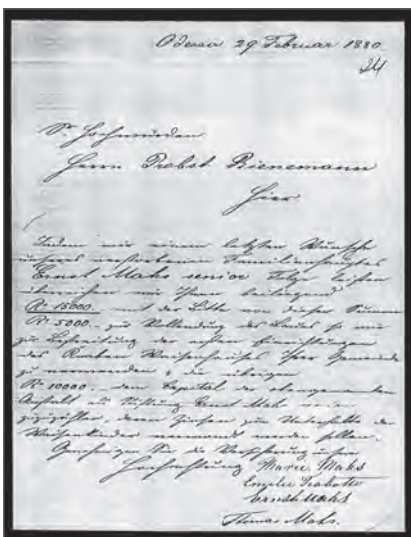 Odessa 29 Februar 1880.
24
Sr. Hochwürden
Herrn Probst Bienemann
Hier
Indem wir einem letzten Wunsche
unseres verstorbenen Familienhauptes
Ernst Mahs senior Folge leisten
überreichen wir Ihnen beiliegend
R. 15000. mit der Bitte von dieser Summe
R. 5000. zur Vollendung des Baues so wie
zur Bestreitung der ersten Einrichtungen
des Knaben Waisenhauses Ihrer Gemeinde
zu verwenden, die übrigen
R. 10000. dem Capital der
Anstalt als Stiftung Ernst Mahs
deren Zinsen zum Unterhalte der
Waisenkinder verwandt werden sollen.
Genehmigen Sie die Versicherung unserer
Hochachtung Marie Mahs
Ernst Mahs
Thomas Mahs.